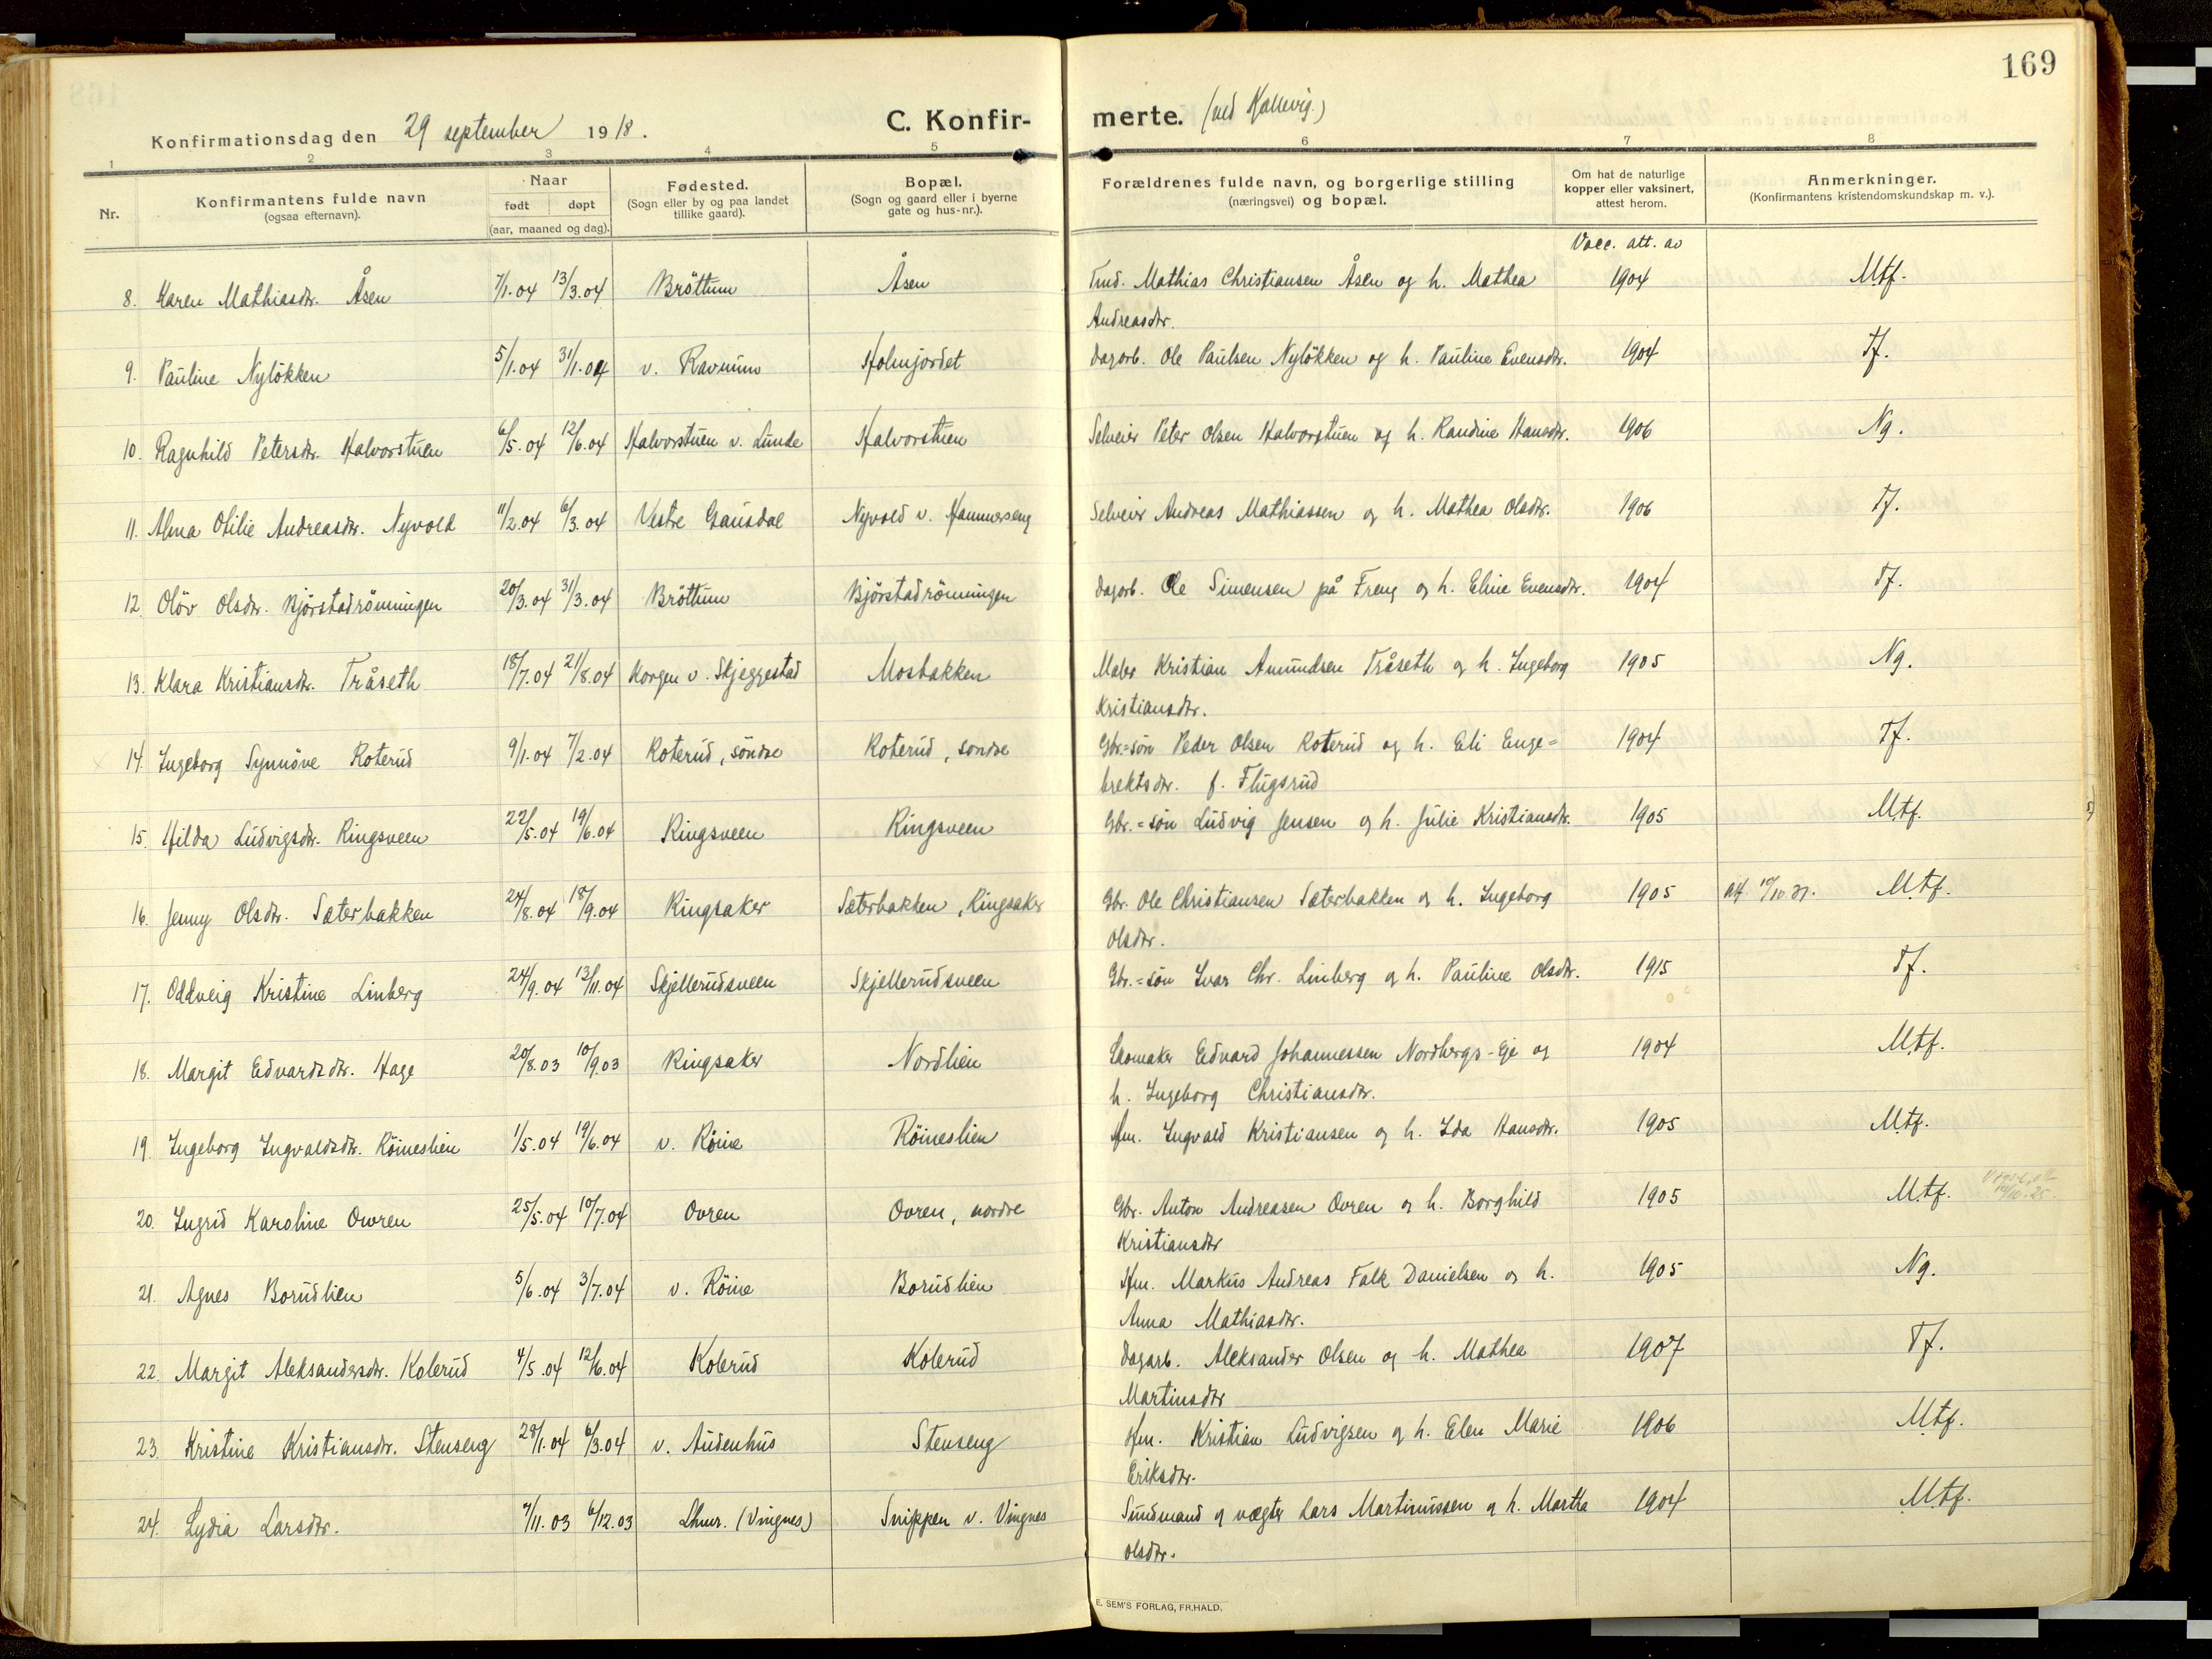 169
Konfirmationsdag den 29 september 1918.
C. Konfirmerte. (ved Hallevig.)
1 2 3 4 5 6 7 8
Nr.
Konfirmantens fulde navn
(ogsaa efternavn).
Naar
født døpt
(aar, maaned og dag).
Fødested.
(Sogn eller by og paa landet
tillike gaard).
Bopæl.
(Sogn og gaard eller i byerne
gate og hus-nr.).
Forældrenes fulde navn, og borgerlige stilling
(næringsvei) og bopæl.
Om hat de naturlige
kopper eller vaksinert,
attest herom.
Anmerkninger.
(Konfirmantens kristendomskundskap m. v.).
Vacc. att. av
8. Karen Mathiasdtr. Åsen 7/1.04 13/3.04 Bröttum Åsen Tmd. Mathias Christiansen Åsen og h. Mathea 1904 Mtf.
Andreasdtr.
9. Pauline Nylökken 5/1.04 31/1.04 v. Ravnum Holmjordet Dagarb. Ole Paulsen Nylökken og h. Pauline Evensdtr. 1904 Tf.
10. Ragnhild Petersdtr. Halvorstuen 6/5.04 12/6.04 Halvorstuen v. Lunde Halvorstuen Selveier Peter Olsen Halvorstuen og h. Randine Hansdtr. 1906 Ng.
11. Alma Otilie Andreasdtr. Nyvold 11/2.04 6/3.04 Vestre Gausdal Nyvold v. Hammerseng Selveier Andreas Mathiassen og h. Mathea Olsdtr. 1906 Tf.
12. Olöv Olsdtr. Bjørstadrönningen 20/3.04 31/3.04 Bröttum Bjørstadrönningen Dagarb. Ole Simensen på Freng og h. Eline Evensdtr. 1904 Tf.
13. Klara Kristiansdtr. Tråseth 18/7.04 21/8.04 Korgen v. Skjeggestad Mosbakken Maler Kristian Amundsen Tråseth og h. Ingeborg 1905 Ng.
Kristiansdtr.
14. Ingeborg Synnöve Roterud 9/1.04 7/2.04 Roterud, söndre Roterud, söndre Gbr.=sön Peder Olsen Roterud og h. Eli Enge= 1904 Tf.
brektsdtr. f. Flugsrud
15. Hilda Ludvigsdtr. Ringsveen 22/5.04 19/6.04 Ringsveen Ringsveen Gbr.=sön Ludvig Jensen og h. Julie Kristiansdtr. 1905 Mtf.
16. Jenny Olsdtr. Sæterbakken 24/8.04 18/9.04 Ringsaker Sæterbakken, Ringsaker Gbr. Ole Christiansen Sæterbakken og h. Ingeborg 1905 Mtf.
Olsdtr.
17. Oddveig Kristine Linberg 24/9.04 13/11.04 Skjellerudsveen Skjellerudsveen Gbr.=sön Ivar Chr. Linberg og h. Pauline Olsdtr. 1915 Tf.
18. Margit Edvardsdtr. Hage 20/8.03 10/9.03 Ringsaker Nordlien Skomaker Edvard Johannessen Nordbergs-Eje og 1904 Mtf.
h. Ingeborg Christiansdtr.
19. Ingeborg Ingvaldsdtr. Röineslien 1/5.04 19/6.04 v. Röine Röineslien Hm. Ingvald Kristiansen og h. Ida Hansdtr. 1905 Mtf.
20. Ingrid Karoline Owren 25/5.04 10/7.04 Ovren Ovren, nordre Gbr. Anton Andreasen Ovren og h. Borghild 1905 Mtf.
Kristiansdtr
21. Agnes Borudlien 5/6.04 3/7.04 v. Röine Borudlien Hm. Markus Andreas Falk Danielsen og h. 1905 Ng.
Anna Mathiasdtr.
22. Margit Aleksandersdtr. Kolerud 4/5.04 12/6.04 Kolerud Kolerud Dagarb. Aleksander Olsen og h. Mathea 1907 Tf.
Martinsdtr
23. Kristine Kristiansdtr. Stenseng 28/1.04 6/3.04 v. Audenhus Stenseng Hm. Kristian Ludvigsen og h. Elen Marie 1906 Mtf.
Eriksdtr.
24. Lydia Larsdtr. 7/11.03 6/12.03 Lhmr. (Vingnes) Snippen v. Vingnes Sundmand og vægter Lars Martinussen og h. Martha 1904 Mtf.
Olsdtr.
E. SEM'S FORLAG, FR.HALD.